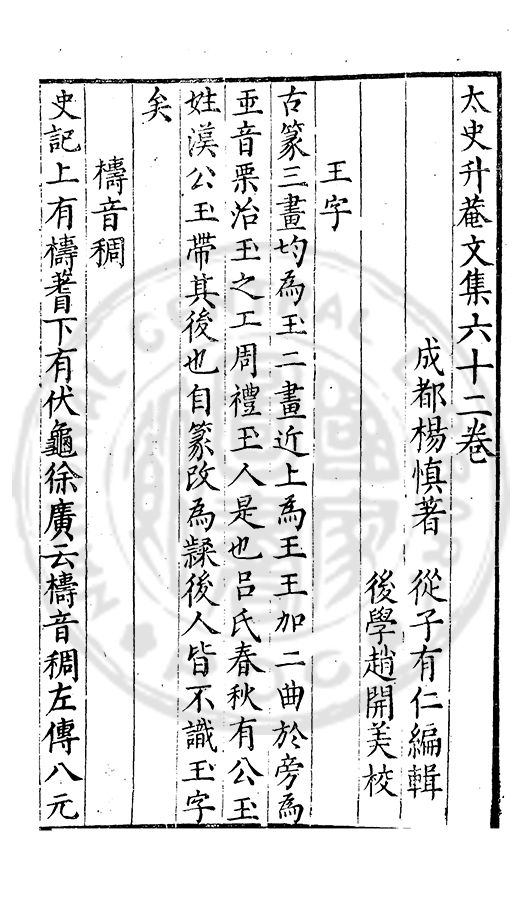 太史升菴文集六十二卷
成都楊慎著　從子有仁編輯
後學趙開美校
王字
古篆三畫均為王二畫近上為王王加二曲於旁為
玊音粟治玉之工周禮玊人是也呂氏春秋有公玊
姓漢公玊帶其後也自篆改為隸後人皆不識玊字
矣
檮音稠
史記上有檮蓍下有伏龜徐廣云檮音稠左傳八元